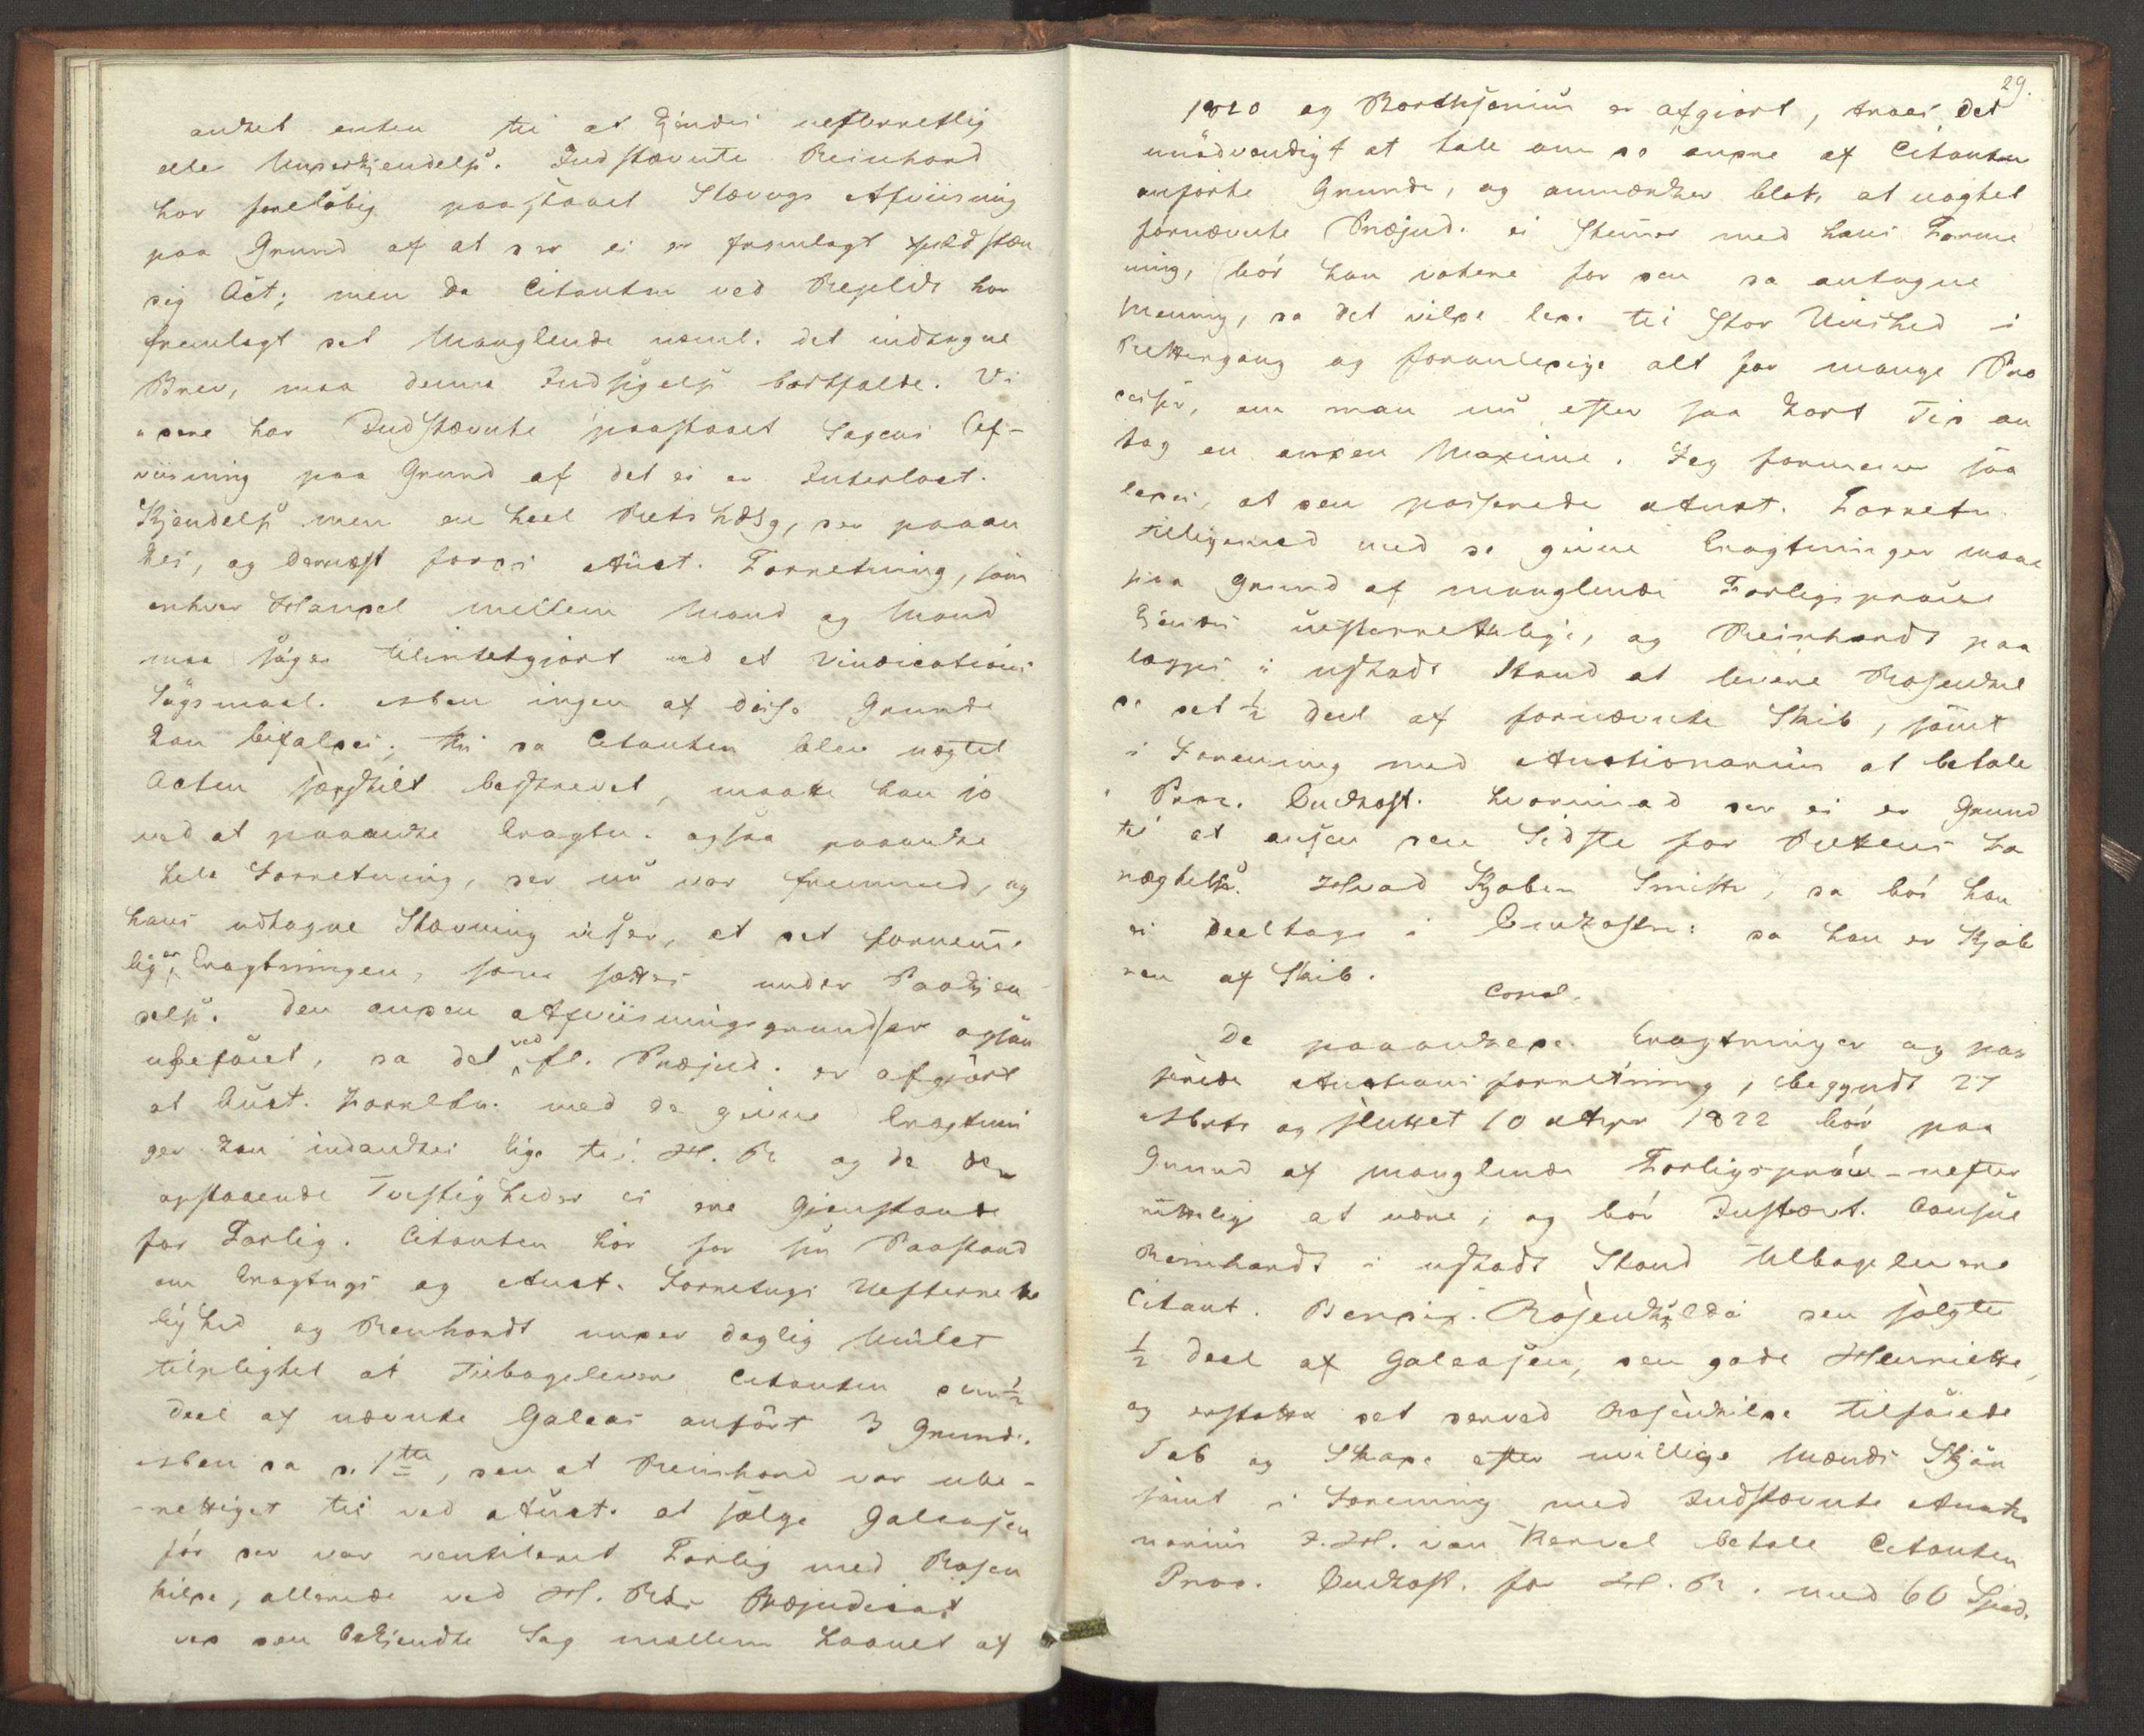 anket enten til at kjendes uefterretlig
eller Underkjendelse. Indstævnte Reinhard
har foreløbig paastaaet Stævngs Afviisning
paa Grund af at der ei er fremlagt
sig Act; men da Citanten ved Replik har
fremlagt det Manglende neml. det indtagne
Brev, maa denne Indsigelse bortfalde. Vi
dere har Indstævnte paastaaet Sagens Af-
viisning paa Grund af det ei er Interloct.
Kjendelse men en heel Retshdlg, der paaan
kes, og dernæst fordi Auct. Forretning, som
enhver Handel mellem Mand og Mand
maa søges tilintetgjort ved et Vindications
Søgsmaal. Men ingen af disse Grunde
kan bifaldes; thi da Citanten blev nægtet
Acten særskilt beskrevet, maatte han jo
ved at paaanke Eragtn. ogsaa paaanke
hele Forretning, der nu var fremmed, og
hans udtagne Stævning viser, at det fornem
lig er Eragtningen, som sættes under Paakjen
delse. Den anden Afviisningsgrund er ogsaa
ubeføiet, da det ved fl. Præjud. er afgjort
at Auct. Forretn. med de givne Eragtnin
ger kan indankes lige til H. R. og da den
opstaaende Tvistigheder ei ere Gjenstande
for Forlig. Citanten har for sin Paastand
om Eragtngs og Auct. Forretngs Uefterrette
lighed og Reinhardt under daglig Mulct
tilpligtet at Tilbagelevere Citanten den 1/2
Deel af nævnte Galeas anført 3 Grunde.
Men da d. 1ste, den at Reinhard var ube-
-rettiget til ved Auct. at sælge Galeasen
før der var ventileret Forlig med Rosen
kilde, allerede ved H. Rets Præjudicat
ved den bekjendte Sag mellem Haanet af
29.
1820 og Borthsenius er afgiort, troes det
unødvendigt at tale om de andre af Citanten
anførte Grunde, og anmærker blot, at uagtet
fornævnte Præjud. ei Stemmer med hans Forme
ning, bør han votere for den da antagne
Mening, da det vilde lede til Stor Uvished i
Rettergang og foranledige alt for mange Pro
cesser, om man nu efter saa kort Tid an
tog en anden Maxime. Jeg formener saa
ledes, at den passerede Auct. Forretn.
tilligemed med de givne Eragtninger maa
paa Grund af manglende Forligsprøve
kjendes uefterrettelige, og Reinhardt paa
lægges i uskadt Stand at levere Rosenkil
de det 1/2 Deel af fornævnte Skib, samt
i Forening med Auctionarius at betale
Proc. Omkost. hvorimod der ei er Grund
til at ansee den Sidste for Rettens Fo
nægtelse. Hvad Kjøber Smitt, da bør han
ei deeltage i Omkostn: da han er Kjøb
ren af Skib.
Concl.
De paaankede Eragtninger og pas
serede Auctionsforretning, begyndt 27
Marts og sluttet 10 Apr 1822 bør paa
Grund af manglende Forligsprøve-uefter
rettelige at være, og bør Indstævt. Consul
Reinhardt i uskadt Stand tilbagelevere
Citant. Bendix. Rosenkilde den solgte
1/2 Deel af Galeasen, den gode Henriette,
og erstatte det derved Rosenkilde tilføiede
Tab og Skade efter uvillige Mænds Skjøn
samt i Forening med Indstævnte Auctio
narius F. H. van Kervel betale Citanten
Proc. Omkost. for H. R. med 60 Spd.